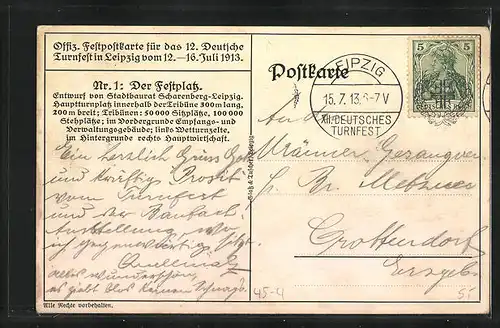 Offiz. Festpostkarte für das 12. Deutsche
Turnfest in Leipzig vom 12.—16. Juli 1913.
Nr. 1: Der Festplatz.
Entwurf von Stadtbaurat Scharenberg-Leipzig.
Hauptturnplatz innerhalb der Tribüne 300 m lang,
200 m breit; Tribünen: 50000 Sitzplätze, 100000
Stehplätze; im Vordergrunde Empfangs- und
Verwaltungsgebäude; links Wetturnzelte,
im Hintergrunde rechts Hauptwirtschaft.
Ein herzlich Gruss Gott
und kräftig Prosit
vom Turnfest
und der Baufach-
Ausstellung, wo
ich gegenwärtig
alles wunderschön,
es gibt blos keinen
Alle Rechte vorbehalten.
Postkarte
LEIPZIG
15.7.13. 6-7 V
XII. DEUTSCHES
TURNFEST
5 5
An
Männer Gesangverein
Br.
Crottendorf
Erzgeb.
45-4
5.-